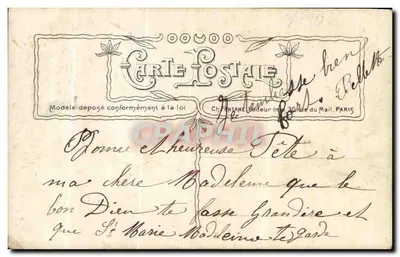 CARTE POSTALE
Modèle déposé conformément à la loi
Éditeur Imp. 30 Rue du Mail. PARIS
Je embrasse bien
fort
Bonne & heureuse Fête à
ma chère Madeleine que le
bon Dieu te fasse Grandire et
que Ste Marie Madeleine te garde